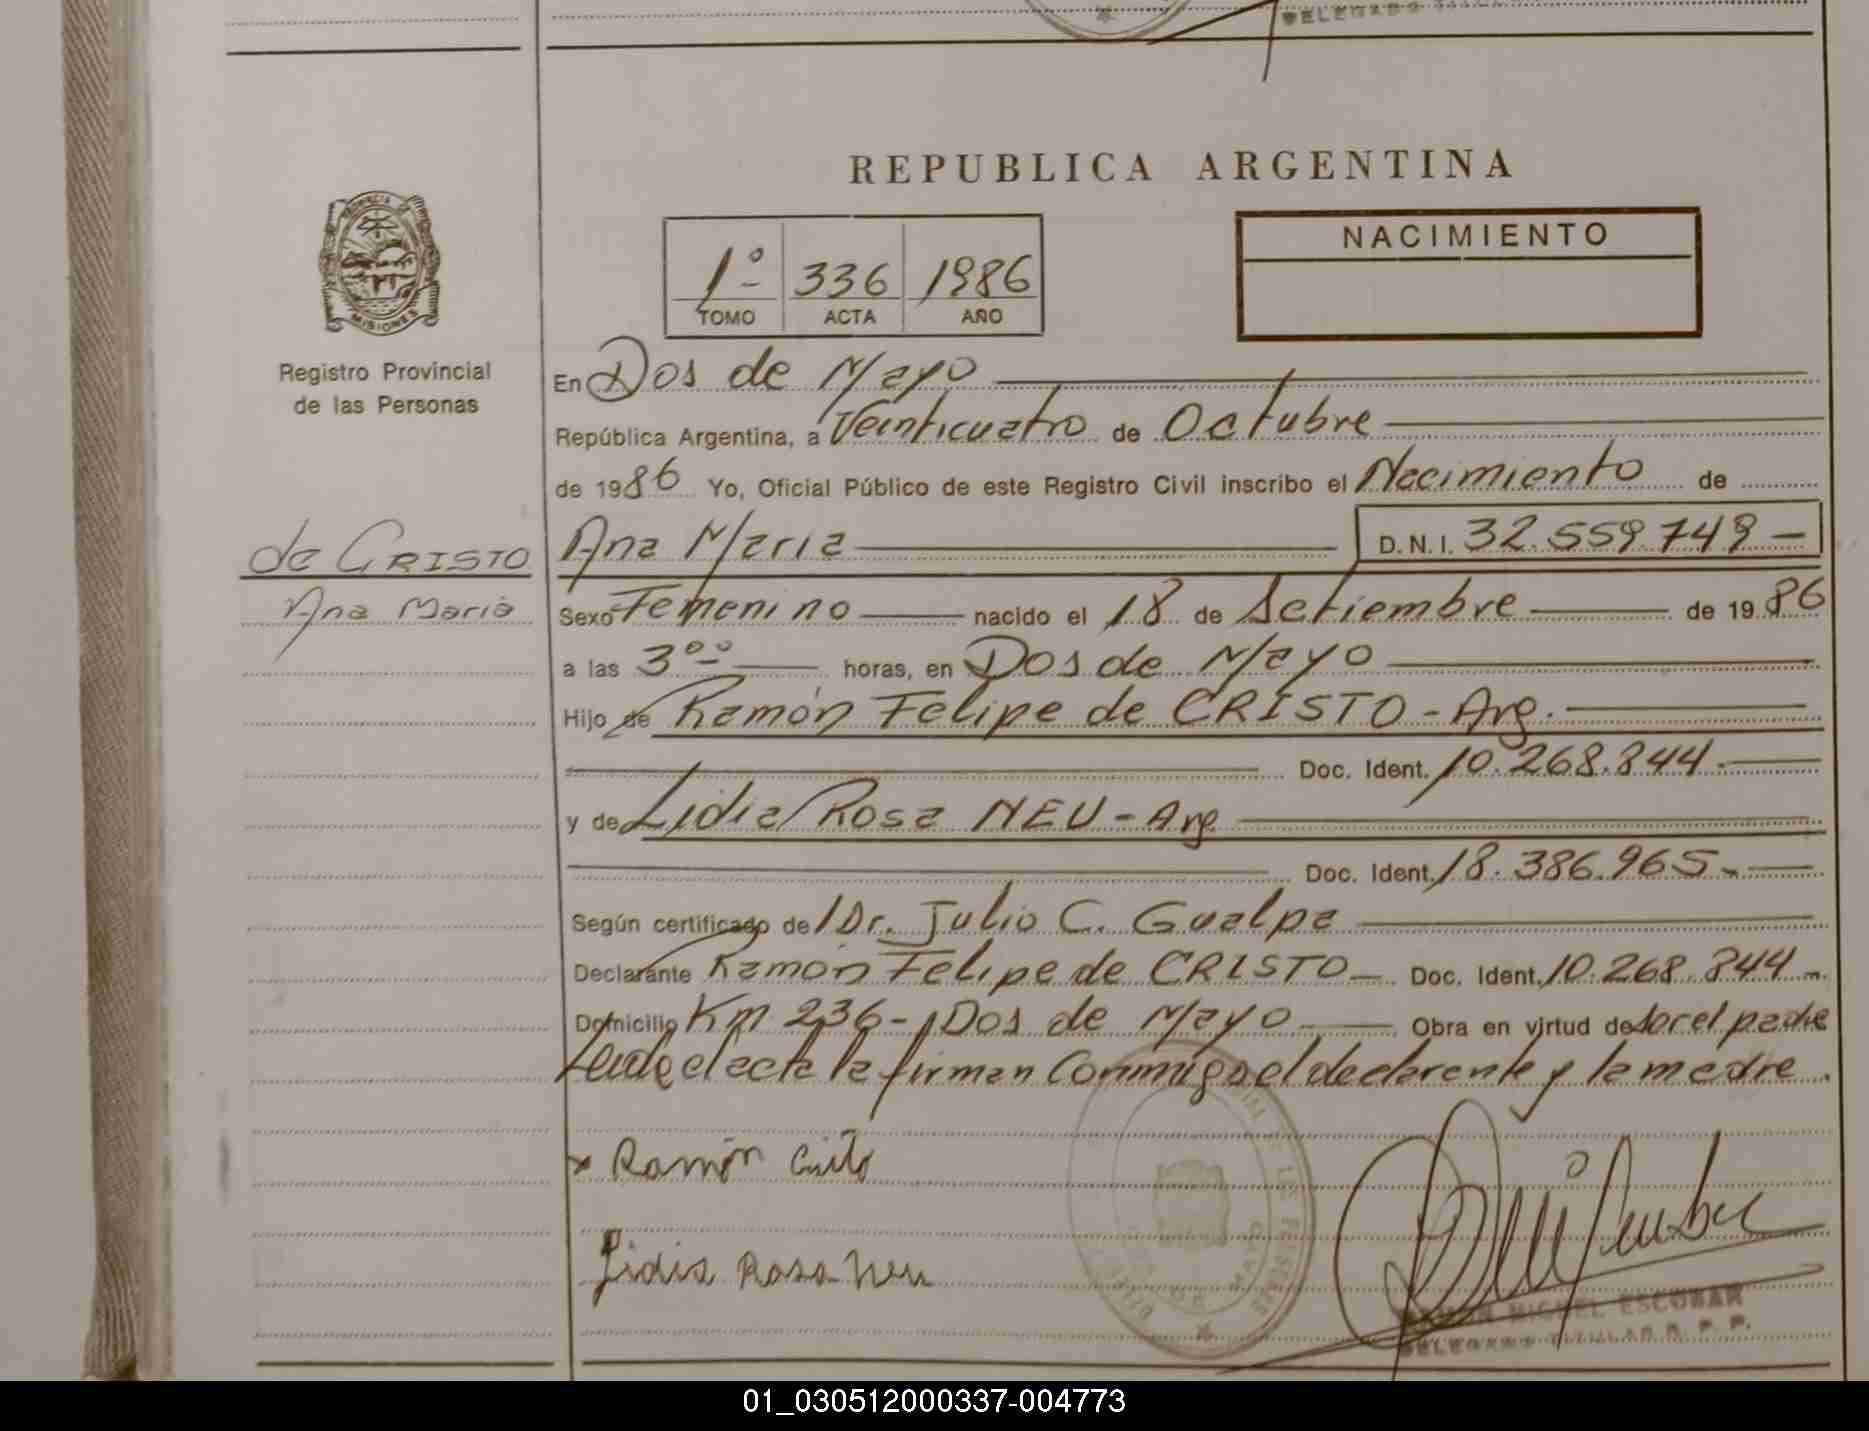 DELEGADO TITULAR
REPUBLICA ARGENTINA
PROVINCIA DE MISIONES
1º 336 1986
TOMO ACTA AÑO
NACIMIENTO
Registro Provincial
de las Personas
En Dos de Mayo
República Argentina, a Veinticuatro de Octubre
de 1986 Yo, Oficial Público de este Registro Civil inscribo el Nacimiento de
de CRISTO
Ana Maria
Ana Maria D.N.I. 32.559.749
Sexo Femenino nacido el 18 de Setiembre de 1986
a las 3⁰⁰ horas, en Dos de Mayo
Hijo de Ramón Felipe de CRISTO - Arg.
Doc. Ident. 10.268.844.
y de Lidia Rosa NEU - Arg
Doc. Ident. 18.386.965-
Según certificado de Dr. Julio C. Gualpa
Declarante Ramón Felipe de CRISTO Doc. Ident. 10.268.844
Domicilio Km 236 - Dos de Mayo Obra en virtud de ser el padre
Leida el acta la firman Conmigo el declarante y la madre.
Ramón Cristo
Lidia Rosa Neu
RAMON MIGUEL ESCOBAR
DELEGADO TITULAR R. P. P.
01_030512000337-004773